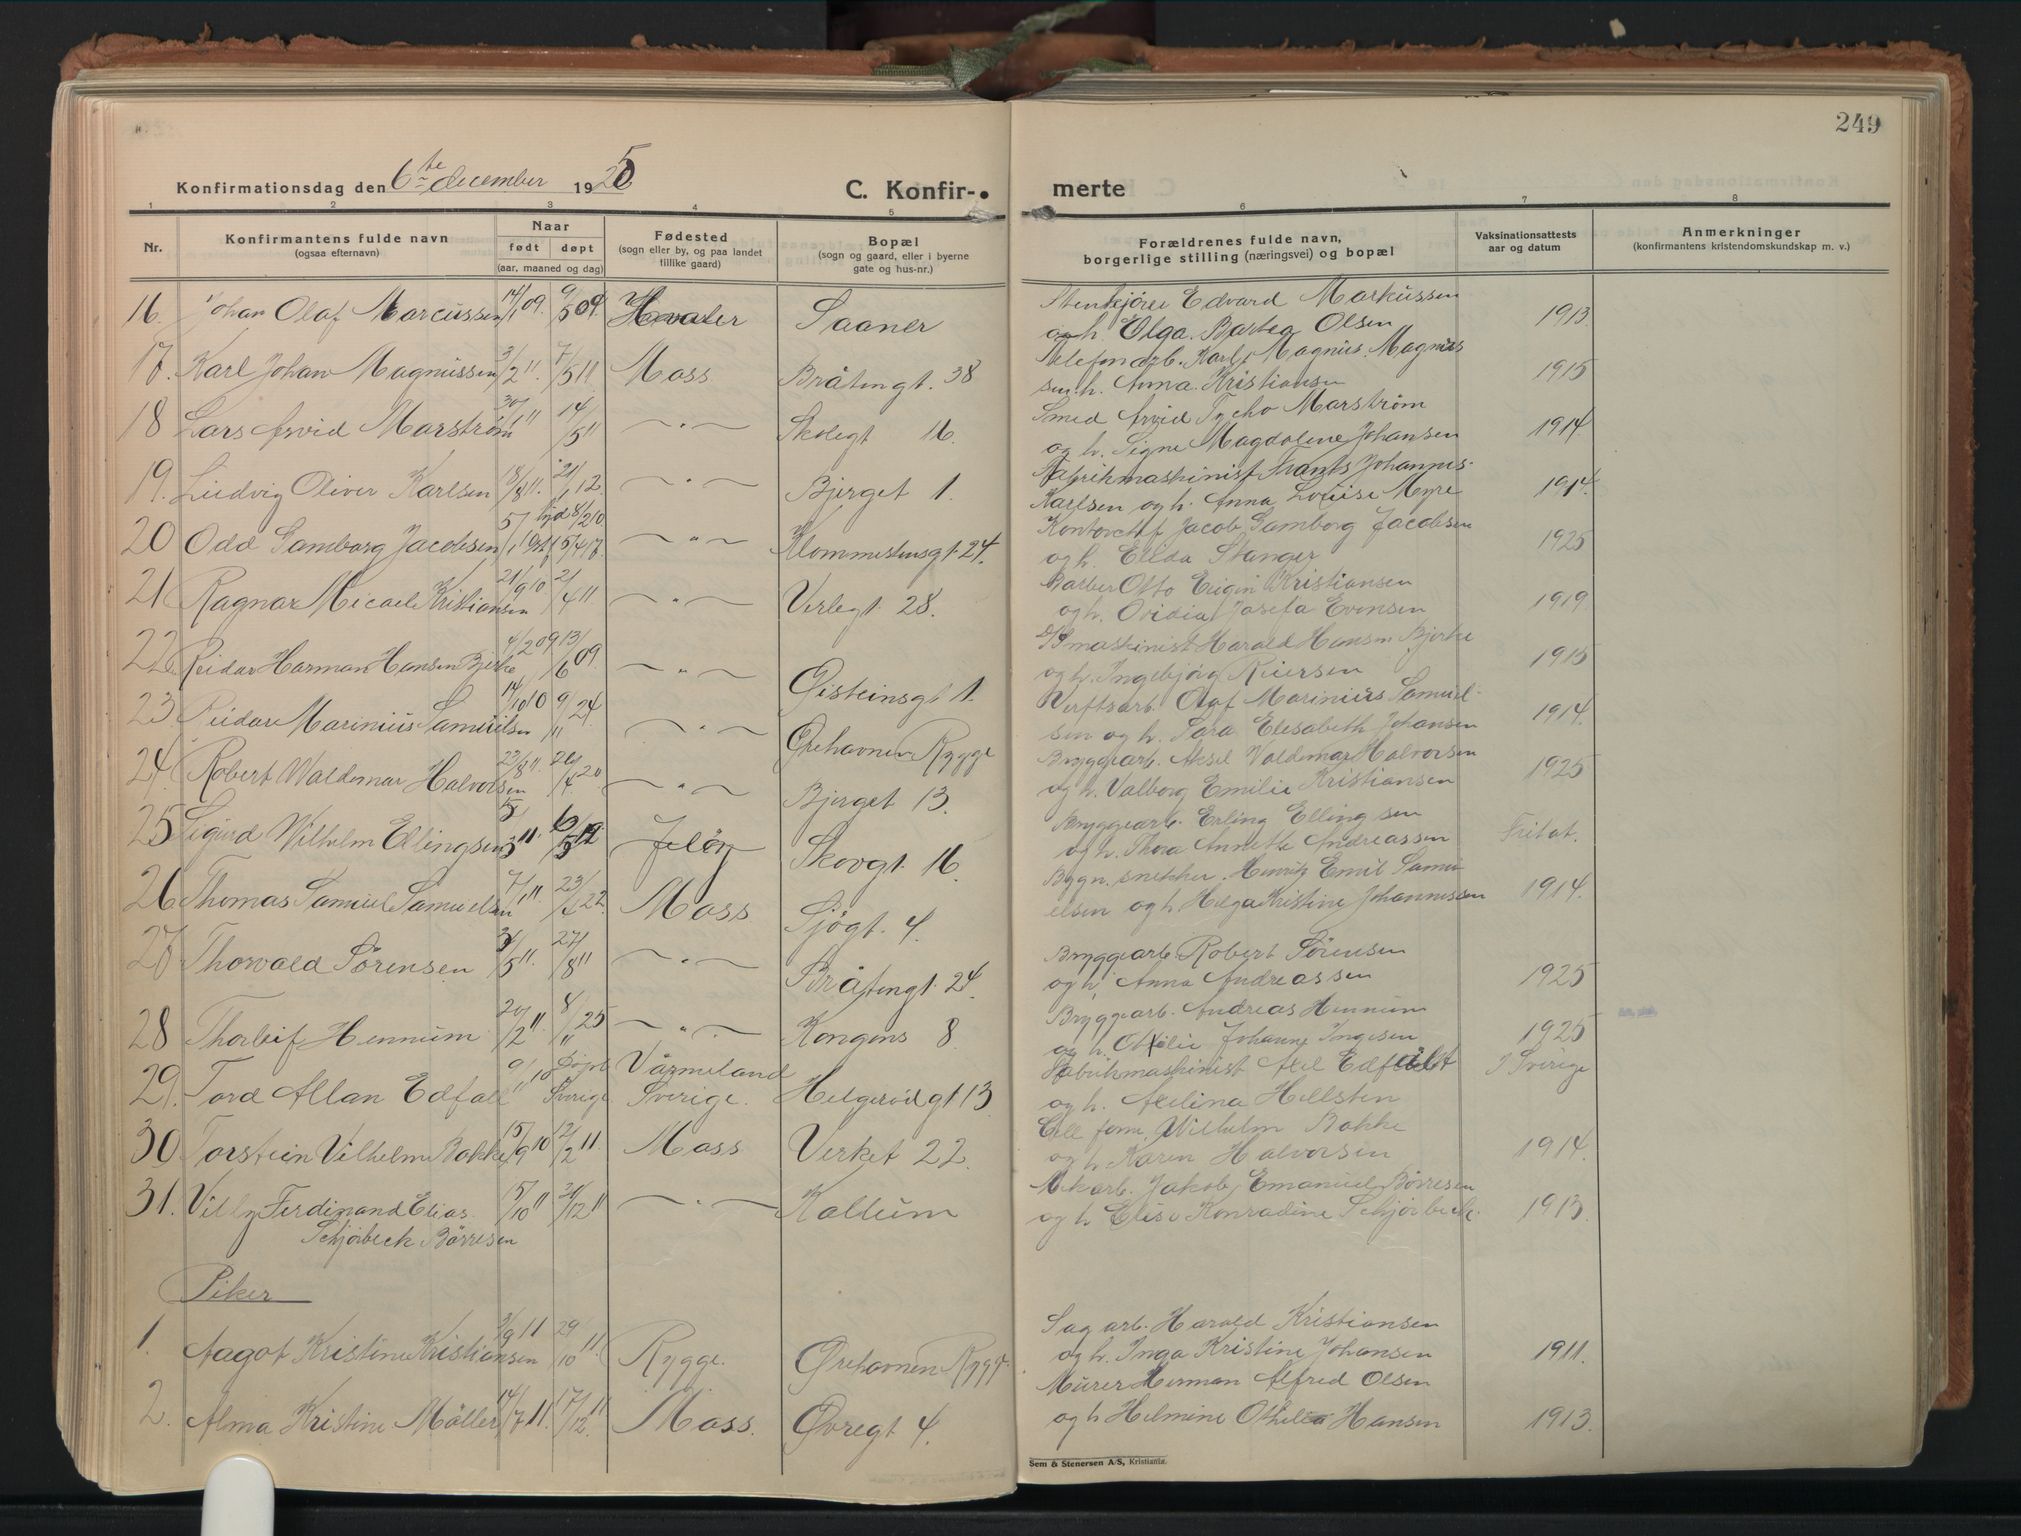 249
Konfirmationsdag den 6te december 1925
C. Konfir-
merte
1 2 3 4 5 6 7 8
Nr.
Konfirmantens fulde navn
(ogsaa efternavn)
Naar
født døpt
(aar, maaned og dag)
Fødested
(sogn eller by, og paa landet
tillike gaard)
Bopæl
(sogn og gaard, eller i byerne
gate og hus-nr.)
Forældrenes fulde navn,
borgerlige stilling (næringsvei) og bopæl
Vaksinationsattests
aar og datum
Anmerkninger
(konfirmantens kristendomskundskap m. v.)
16. Johan Olaf Marcussen 14/1 09. 9/5 09. Hvaler Saaner
Stenkjører Edvard Markussen
og h. Olga Bartea Olsen 1913
17. Karl Johan Magnussen 3/2 11. 7/5 11 Moss Bråtengt. 38
Telefonarb. Karl Magnus Magnus
sen h. Anna Kristiansen 1915
18 Lars Arvid Marstrøm 30/1 11 14/5 11 — " — Skolegt 16.
Smed Arvid Tycho Marstrøm
og h. Signe Magdalene Johansen 1914
19. Ludvig Oliver Karlsen 18/8 11. 21/1 12. — " — Bjerget 1.
Fabrikmaskinist Frants Johannes
Karlsen og h. Anna Lovise Myre 1914.
20 Odd Gamborg Jacobsen — " — Klommestensgt. 24.
Kontorchef Jacob Gamborg Jacobsen
og h. Ellda Stanger 1925
21 Ragnar Micael Kristiansen 21/9 10 2/4 11 — " — Verlegt. 28.
Barber Otto Eugin Kristiansen
og h. Ovidia Josefa Evensen 1919
22 Reidar Harman Hansen Bjerke 4/2 09 13/6 09. — " — Øisteinsgt 1.
maskinist Harald Hansen Bjerke
og h. Ingebjørg Reiersen 1915
23 Reidar Marinius Samuelsen 14/10 10 9/11 24. — " — Ørehavnen Rygge
Verftsarb. Olaf Marinius Samuel-
sen og h. Sara Elesabeth Johansen 1914.
24. Robert Waldemar Halvorsen 22/8 11. 26/4 20 — " — Bjerget 13.
Bryggearb. Aksel Valdemar Halvorsen
og h. Valborg Emilie Kristiansen 1925
25 Sigurd Wilhelm Ellingsen 5/3 11. Jeløy Skovgt. 16.
Bryggearb. Erling Ellingsen
og h. Thora Annette Andreassen Fritat.
26 Thomas Samuel Samuelsen 7/1 11. Moss Sjøgt. 4.
Bygn. snekker. Henrik Emil Samu-
elsen og h Helga Kristine Johannessen 1914.
27 Thorvald Sørensen 27/8 11 — " — Bråtengt. 24.
Bryggearb Robert Sørensen
og h. Anna Andreassen 1925
28 Thorleif Hennum 20/2 11. 8/11 25 — " — Kongens 8.
Bryggearb. Andreas Hennum
og h. Otilie Johanne Ingesen 1925
29. Tord Allan Edfalt 9/11 10 Døpt Sverige Värmeland Sverige. Helgerødgt 13
Fabrikmaskinist Axel Edfalt
og h. Axelina Hellsten I Sverige
30 Torstein Vilhelm Bakke 15/9 10 12/2 11 Moss Verket 22.
Cell. form. Wilhelm Bakke
og h. Karen Halvorsen 1914.
31. Villy Ferdinand Elias
Schjørbeck Børresen 15/10 11 31/12 11 — " — Kallum
Mek arb. Jakob Emanuel Børresen
og h Elise Konradine Schjørbeck. 1913.
Piker
1. Aagot Kristine Kristiansen 3/9 11 29/10 11. Rygge. Ørehavnen Rygge.
Sag arb. Harald Kristiansen
og h. Inga Kristine Johansen 1911.
2. Alma Kristine Møller 14/7 11. 17/12 11 Moss. Øvregt 4.
Murer Herman Alfred Olsen
og h Helmine Othelia Hansen 1913.
Sem & Stenersen A/S, Kristiania.